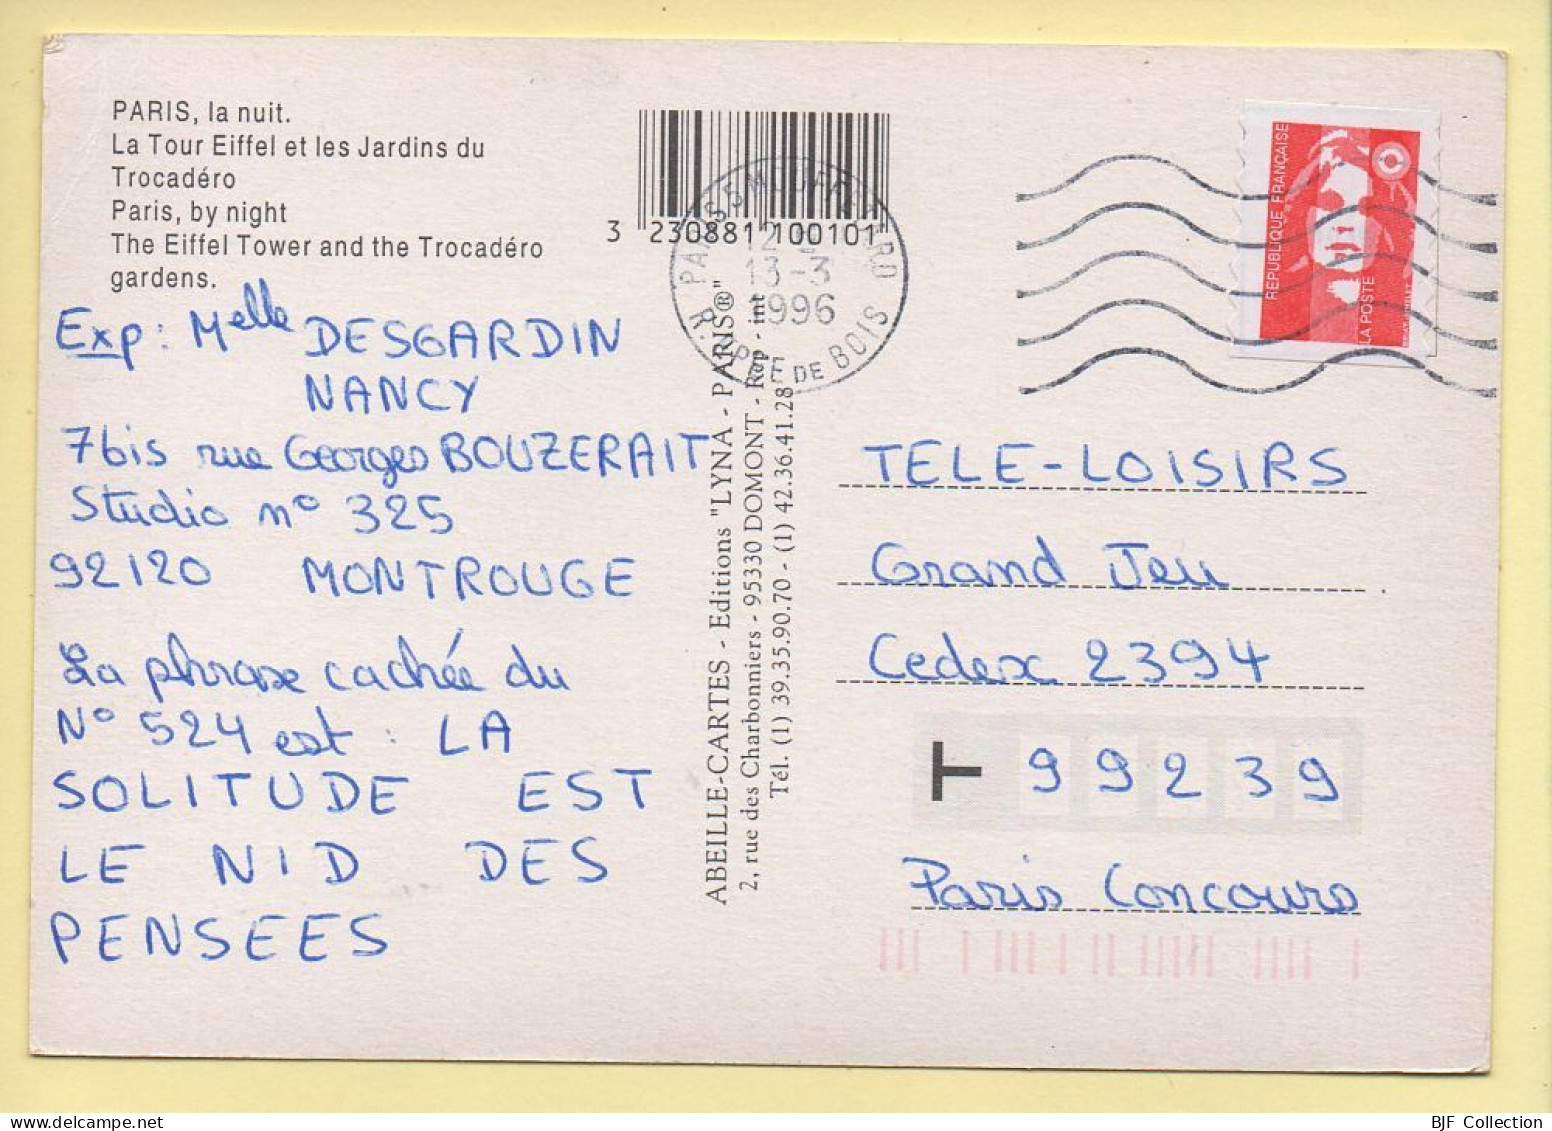 PARIS, la nuit.
La Tour Eiffel et les Jardins du
Trocadéro
Paris, by night
The Eiffel Tower and the Trocadéro
gardens.
3 230881 100101
13-3
1996
DE BOIS
REPUBLIQUE FRANÇAISE
LA POSTE
Exp: Melle DESGARDIN
NANCY
7bis rue Georges BOUZERAIT
Studio n° 325
92120 MONTROUGE
La phrase cachée du
N° 524 est : LA
SOLITUDE EST
LE NID DES
PENSEES
ABEILLE-CARTES - Editions "LYNA - PARIS®"
2, rue des Charbonniers - 95330 DOMONT - Rep - int
Tél. (1) 39.35.90.70 - (1) 42.36.41.28
TELE-LOISIRS
Grand Jeu
Cedex 2394
T 99239
Paris Concours
BJF Collection